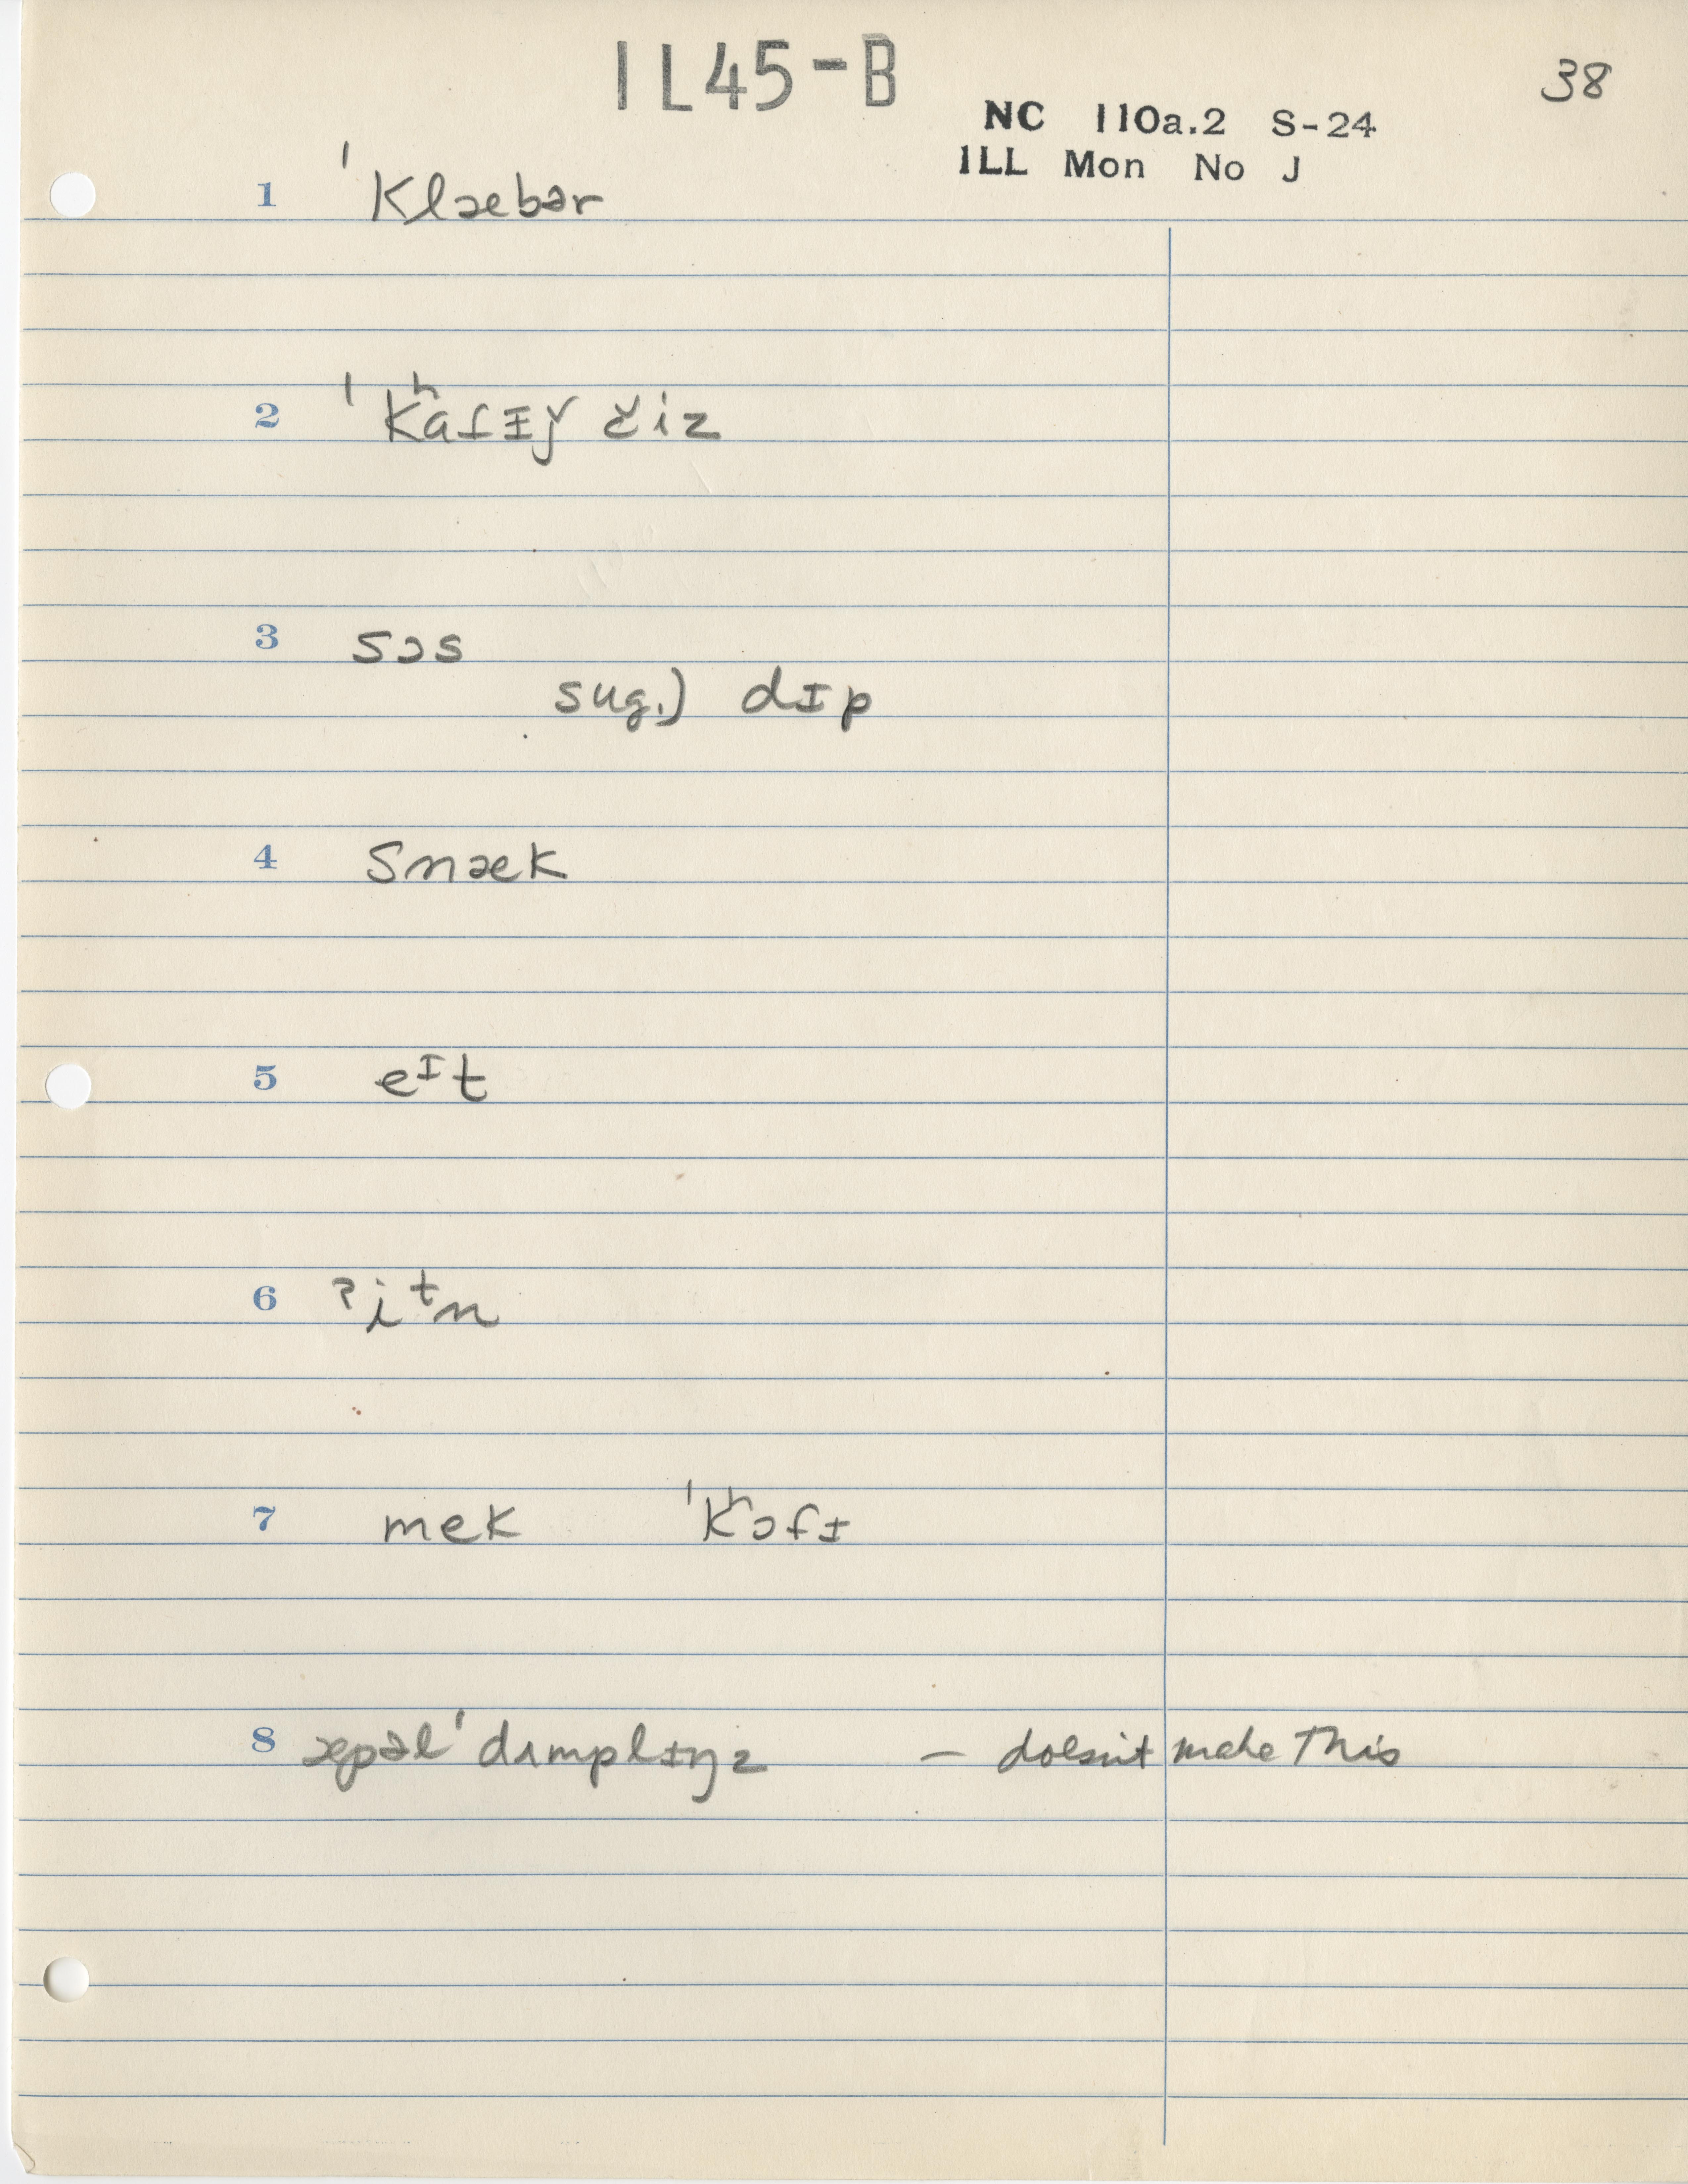 IL45-B
38
NC 110a.2 S-24
ILL Mon No J
1 ˈklæbər
2 ˈkʰatɪǰ čiz
3 sɔs
sug.) dɪp
4 snæk
5 eᴵt
6 ˀiᵗn
7 mek ˈkʰɔfɪ
8 æpəl ˈdʌmplɪŋz — doesn't make this